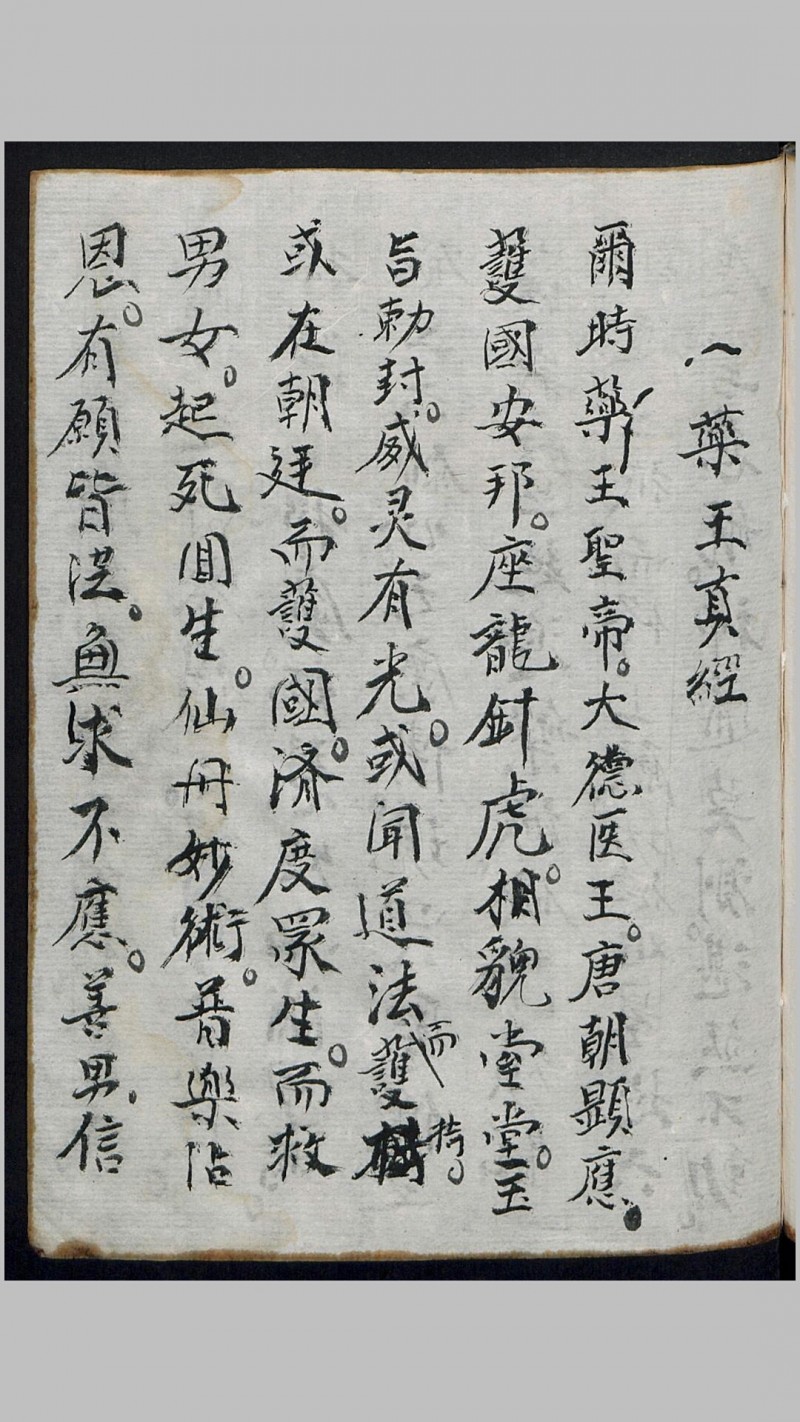 藥王真經
爾時藥王聖帝。大德医王。唐朝顯應。
護國安邦。座龍針虎。相貌堂堂。玉
旨勅封。威灵有光。或闻道法而護持。
或在朝廷。而護國。済度眾生。而救
男女。起死囬生。仙丹妙術。普樂沾
恩。有願皆從。無求不應。善男。信